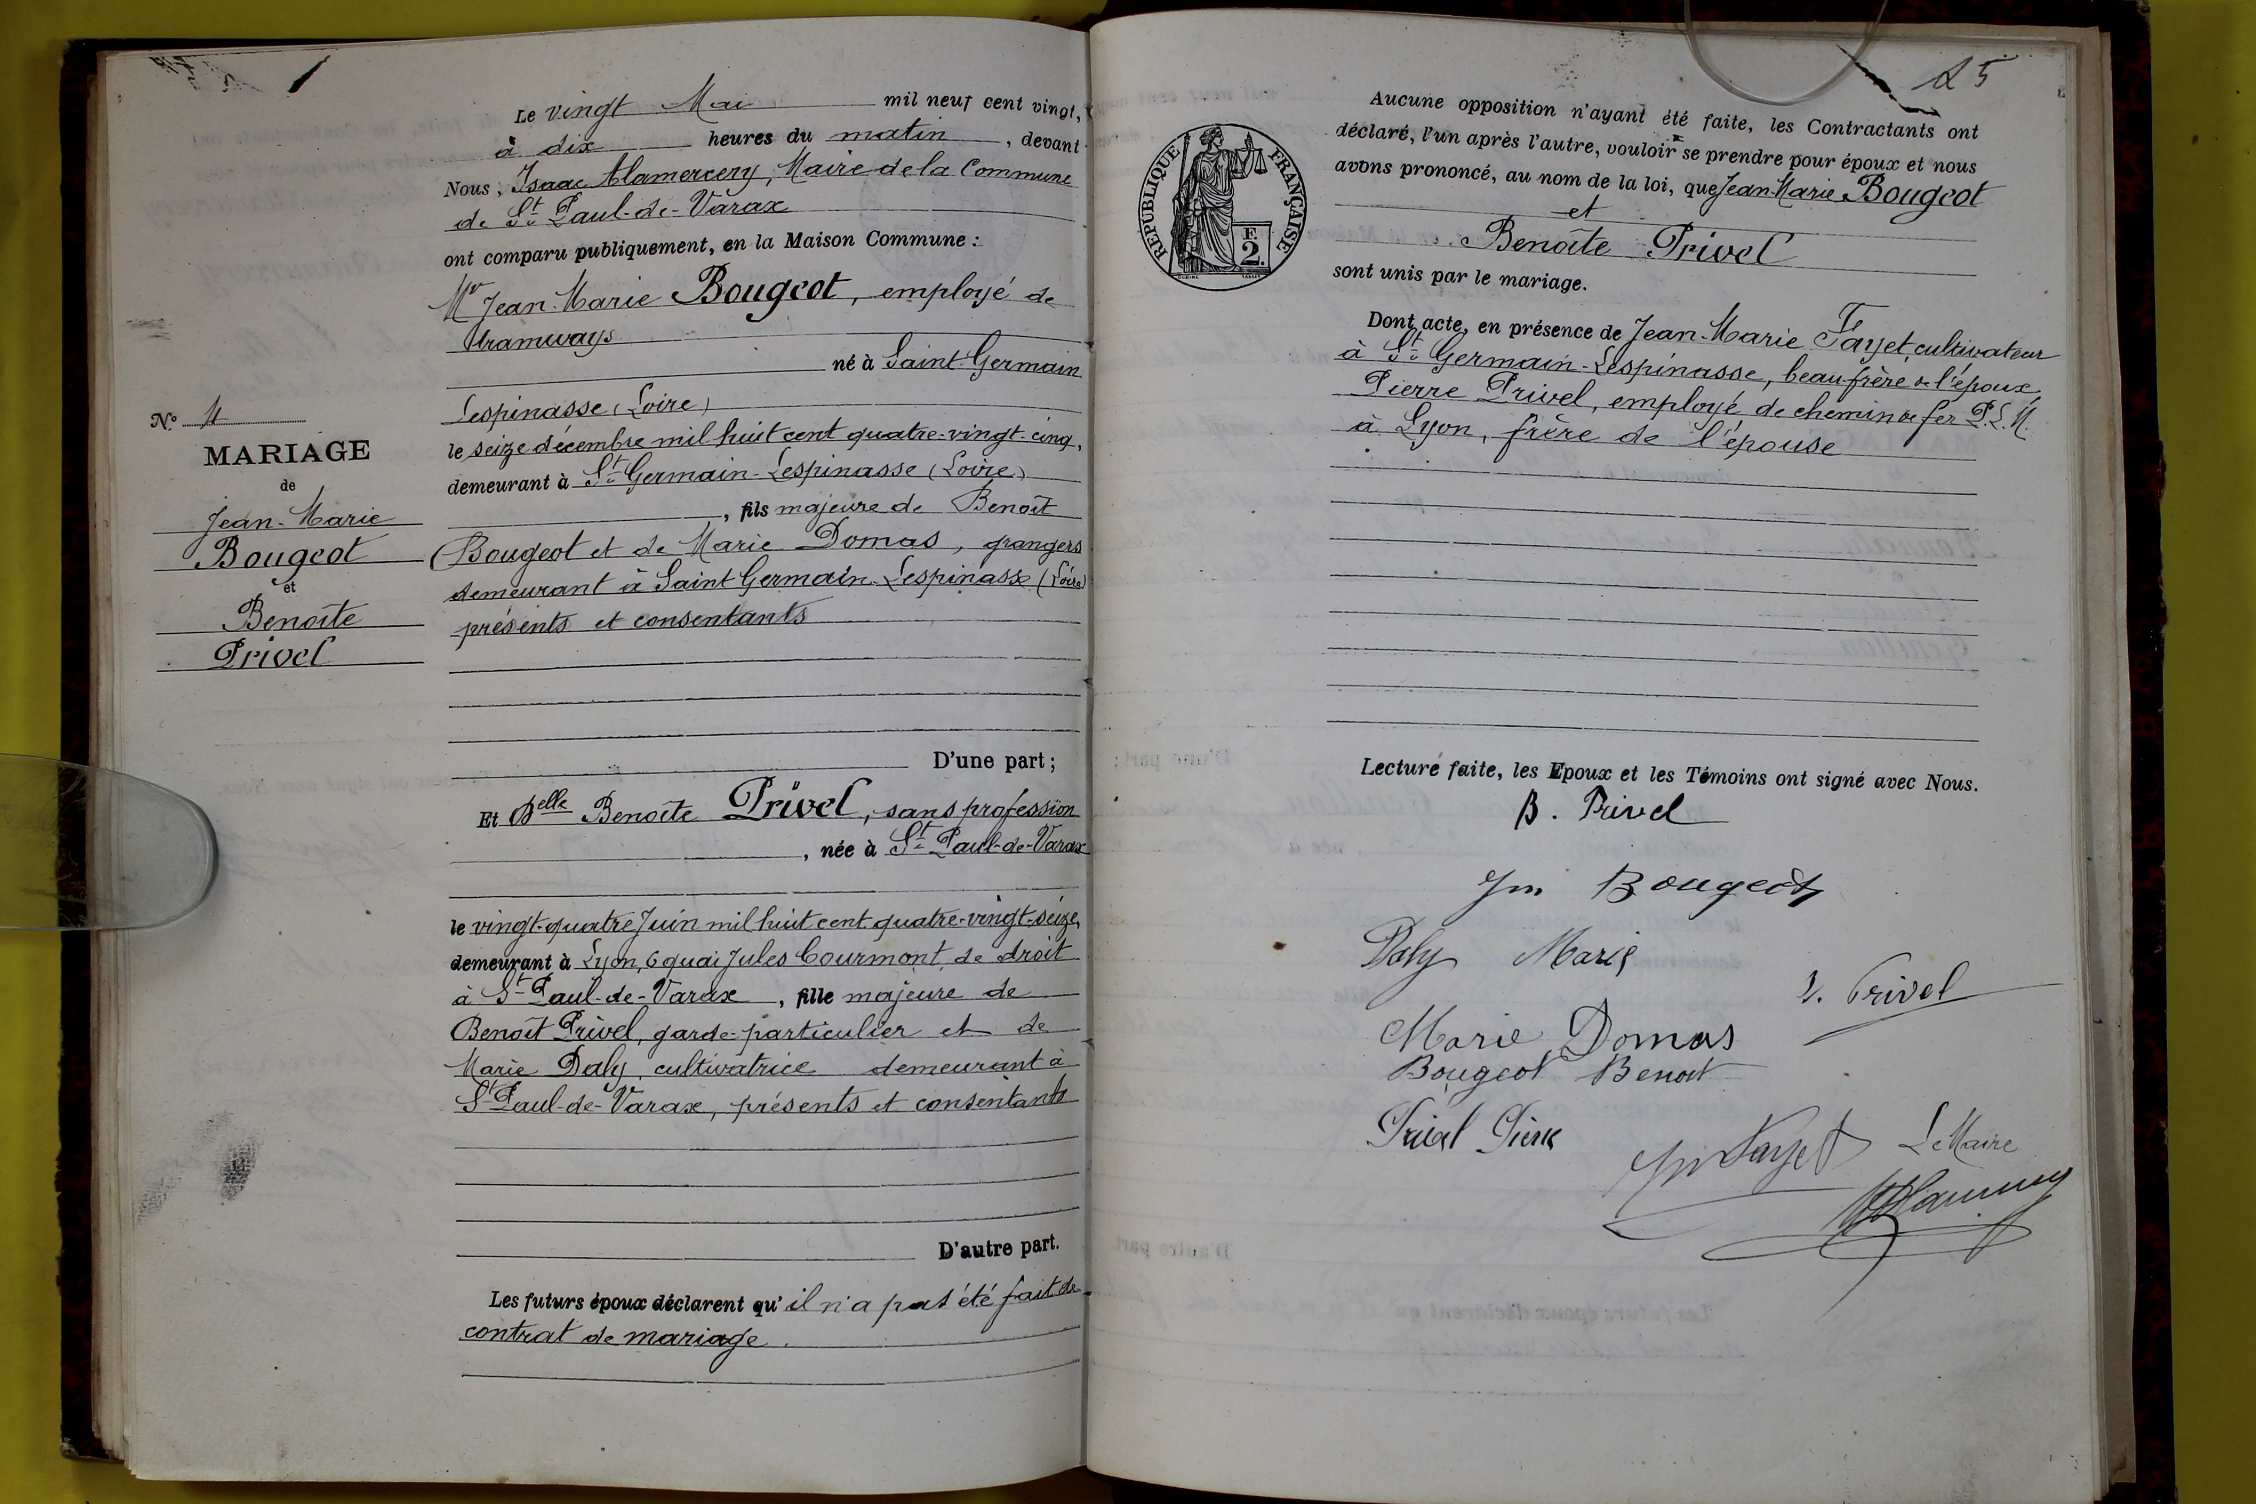 Le vingt Mai mil neuf cent vingt,
à dix heures du matin, devant
Nous, Isaac Alamercery, Maire de la Commune
de St Paul-de-Varax
ont comparu publiquement, en la Maison Commune :
Mr Jean-Marie Bougeot, employé de
tramways
né à Saint-Germain
Lespinasse (Loire)
le seize décembre mil huit cent quatre-vingt-cinq,
demeurant à St Germain-Lespinasse (Loire)
, fils majeure de Benoît
Bougeot et de Marie Domas, grangers
demeurant à Saint Germain-Lespinasse (Loire)
présents et consentants
D'une part ;
Et Delle Benoîte Privel, sans profession
, née à St Paul-de-Varax
le vingt-quatre Juin mil huit cent quatre-vingt-seize,
demeurant à Lyon, 6 quai Jules Courmont, de droit
à St Paul-de-Varax, fille majeure de
Benoît Privel, garde-particulier et de
Marie Daly, cultivatrice demeurant à
St Paul-de-Varax, présents et consentants
D'autre part.
Les futurs époux déclarent qu'il n'a pas été fait de
contrat de mariage.
No 4
MARIAGE
de
Jean-Marie
Bougeot
et
Benoîte
Privel
25
RÉPUBLIQUE FRANÇAISE
F.
2.
Aucune opposition n'ayant été faite, les Contractants ont
déclaré, l'un après l'autre, vouloir se prendre pour époux et nous
avons prononcé, au nom de la loi, que Jean-Marie Bougeot
et
Benoîte Privel
sont unis par le mariage.
Dont acte, en présence de Jean-Marie Fayet, cultivateur
à St Germain-Lespinasse, beau-frère de l'époux,
Pierre Privel, employé de chemin de fer P.L.M.
à Lyon, frère de l'épouse
Lecture faite, les Epoux et les Témoins ont signé avec Nous.
B. Privel
Jm Bougeot
Daly Marie
Privel
Marie Domas
Bougeot Benoit
Privel Pierre
Jm Fayet
Le Maire